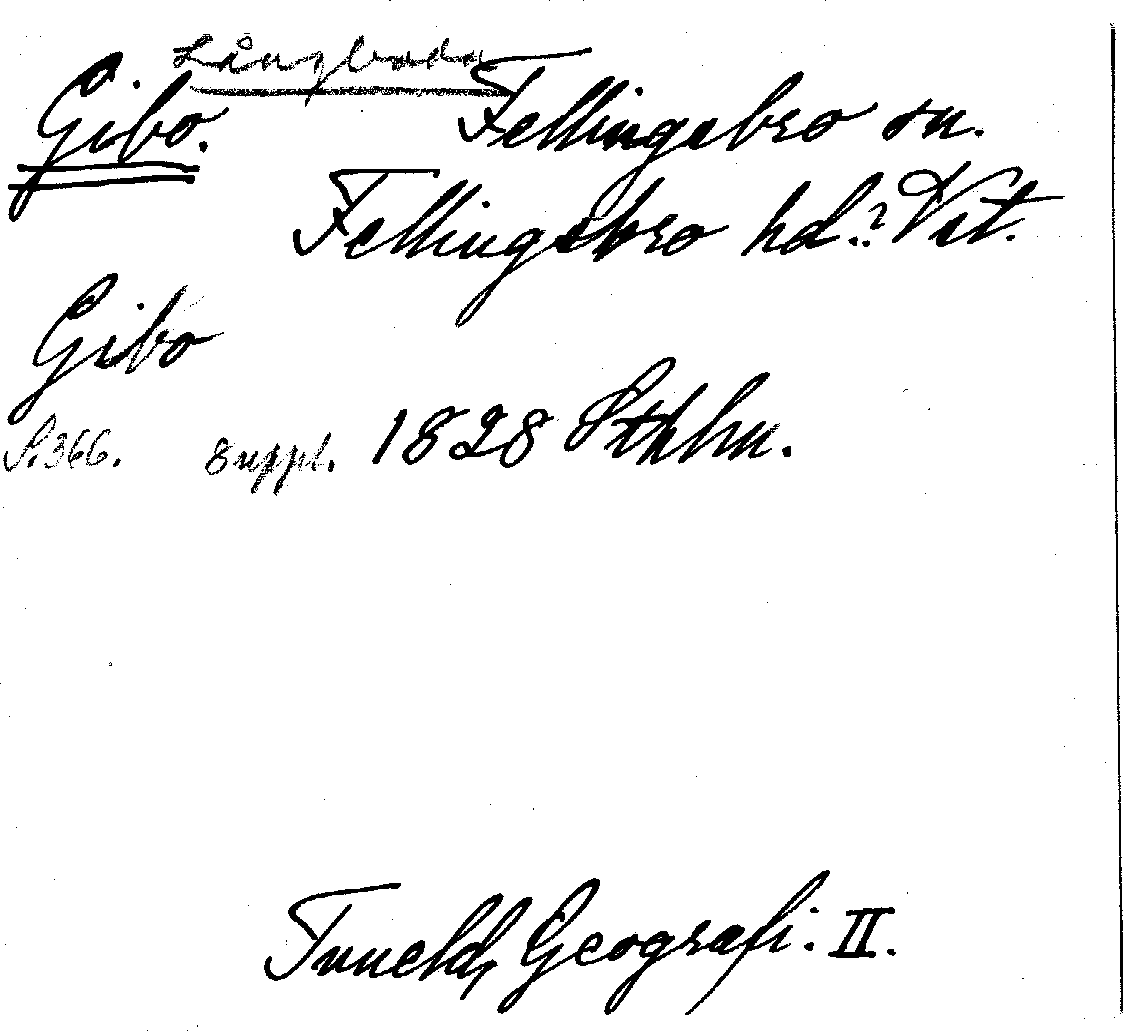 Långboda
Gibo. Fellingsbro sn.
Fellingsbro hd.? Vst.
Gibo
S. 366. Suppl. 1828 Sthlm.
Tuneld, Geografi. II.